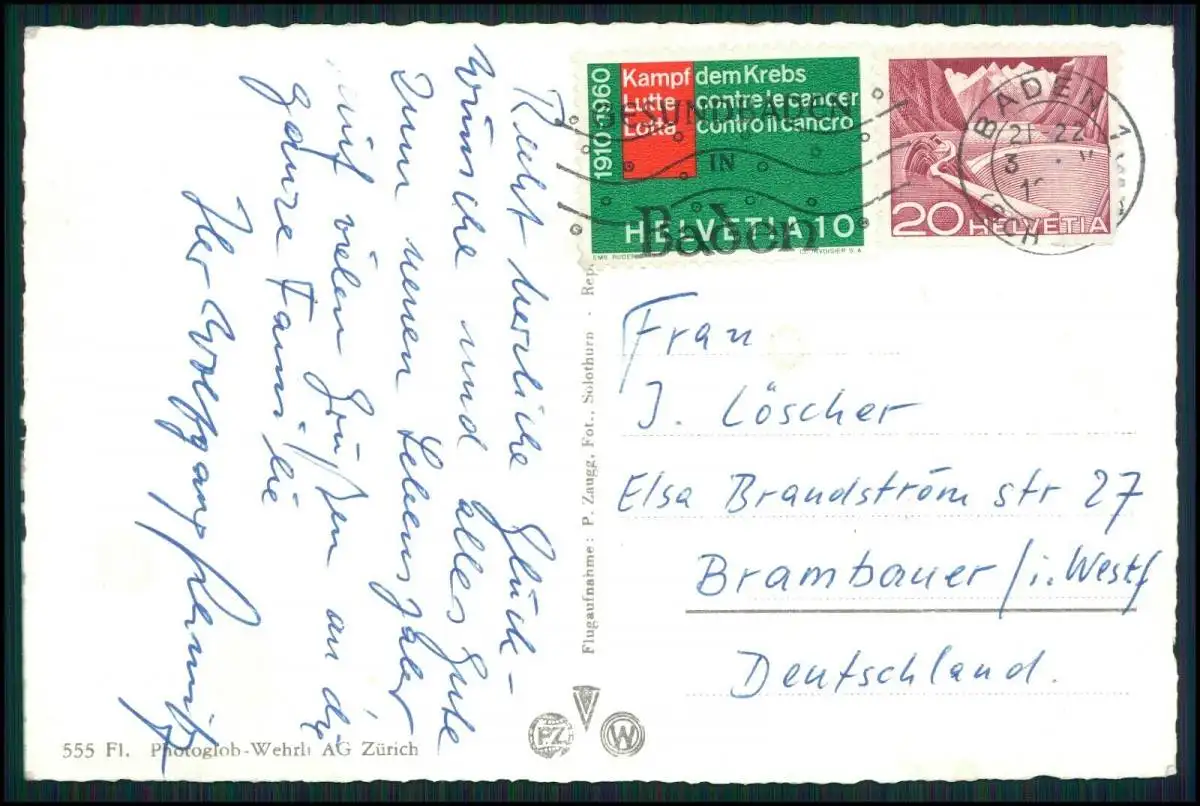 Recht herzliche Glück-
wünsche und alles Gute
zum neuen Lebensjahr
mit vielen Grüßen an die
ganze Familie
Ihr Wolfgang
1910-1960
Kampf dem Krebs
Lutte contre le cancer
Lotta contro il cancro
HELVETIA 10
GESUND BADEN
IN
Baden
20 HELVETIA
BADEN 1
Frau
J. Löscher
Elsa Brandström str 27
Brambauer / i. Westf
Deutschland.
Flugaufnahme: P. Zaugg, Fot., Solothurn · Rep
PZ
W
555 Fl. Photoglob-Wehrli AG Zürich